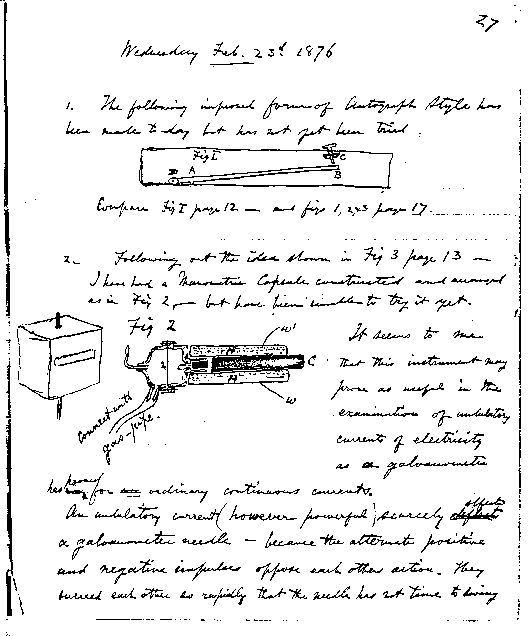 27
Wednesday Feb. 23d 1876
1. The following improved form of Autograph Style has
been made to day but has not yet been tried.
Fig I.
A
B
C
Compare Fig I page 12 — and figs 1, 2 & 3 page 17
2. Following out the idea shown in Fig 3 page 13 —
I have had a Manometric Capsule constructed and arranged
as in Fig 2, — but have been unable to try it yet.
Fig 2
W'
H
C
H
W
connect with
gas-pipe.
It seems to me
that this instrument may
prove as useful in the
examination of undulatory
currents of electricity
as a galvanometer
has proved for ordinary continuous currents.
An undulatory current (however powerful) scarcely deflects affects
a galvanometer needle — because the alternate positive
and negative impulses oppose each others action. They
succeed each other so rapidly that the needle has not time to swing